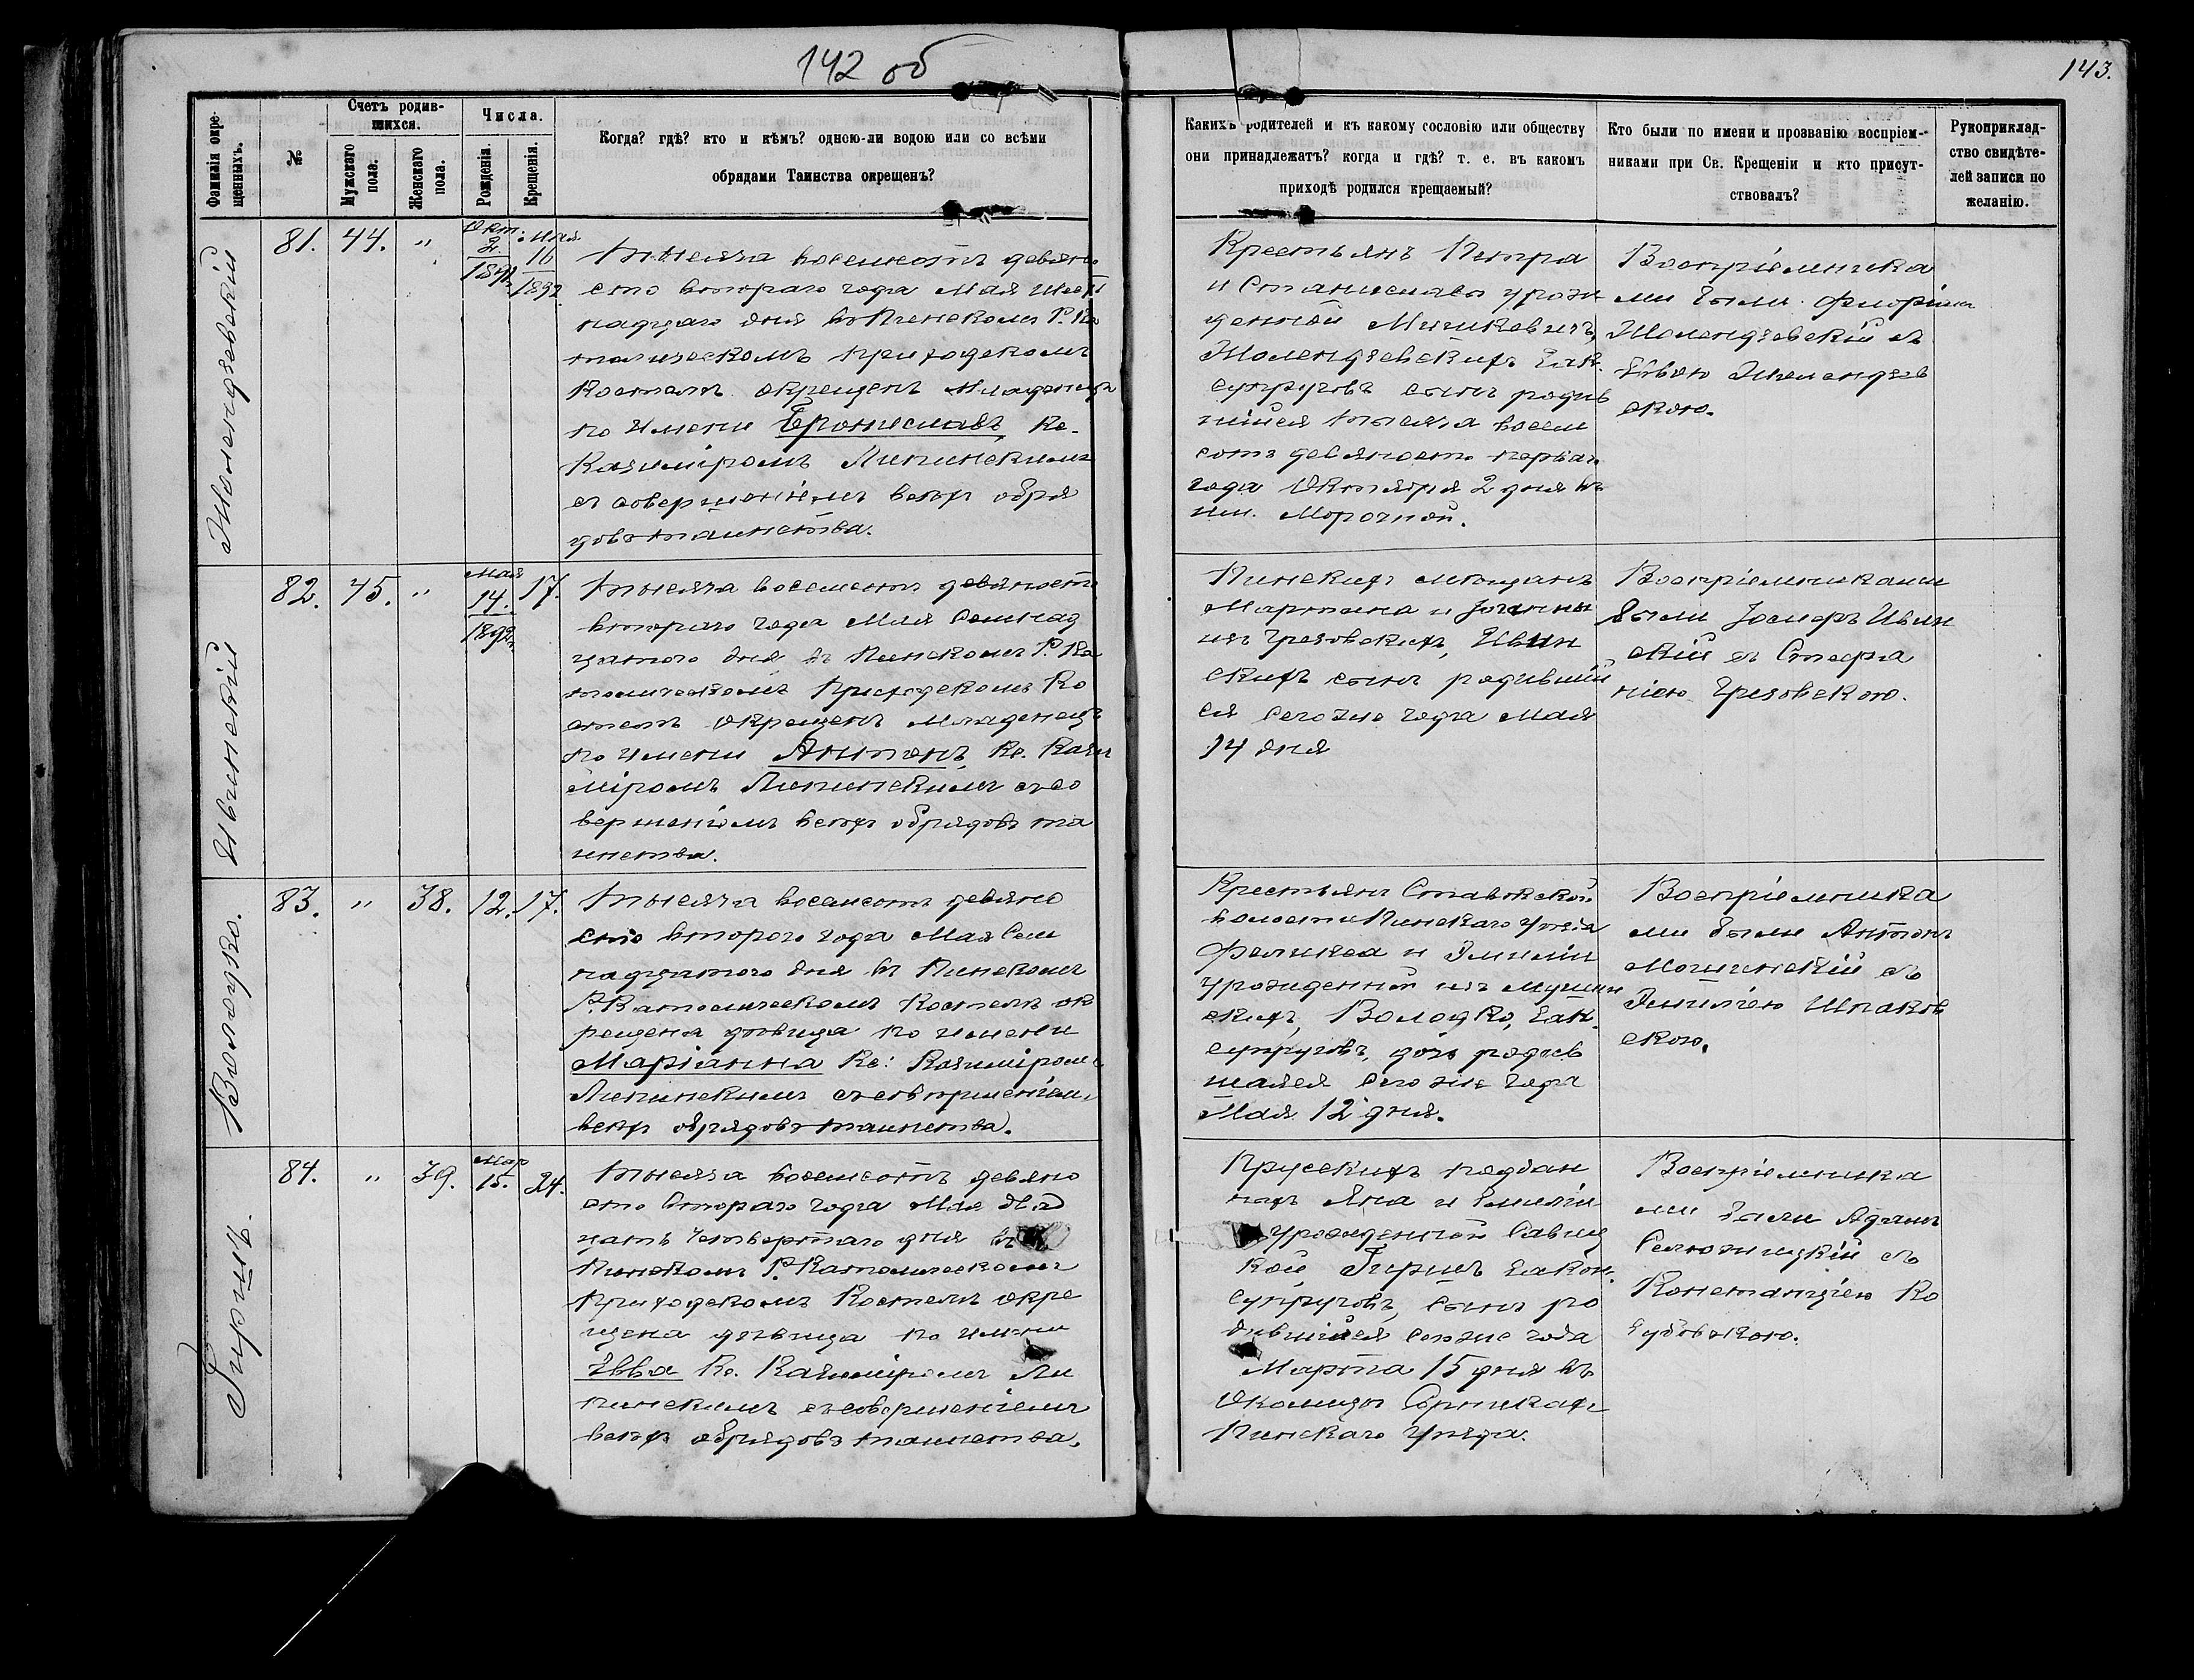 142 об
143.
Фамилія окре-
щенныхъ.
№
Счетъ родив-
шихся.
Мужскаго
пола.
Женскаго
пола.
Числа.
Рожденія.
Крещенія.
Когда? гдѣ? кто и кѣмъ? одною-ли водою или со всѣми
обрядами Таинства окрещенъ?
Какихъ родителей и къ какому сословію или обществу
они принадлежатъ? когда и гдѣ? т. е. въ какомъ
приходѣ родился крещаемый?
Кто были по имени и прозванію воспріем-
никами при Св. Крещеніи и кто присут-
ствовалъ?
Рукоприклад-
ство свидѣте-
лей записи по
желанію.
Жолендзевскій
81. 44. "
Окт. 2. 1891
Мая 16 1892
Тысяча восемьсотъ девяно
сто втораго года Мая Шест
надцаго дня въ Пинскомъ Р. Ка
толическомъ приходскомъ
Костелѣ окрещенъ младенецъ
по имени Брониславъ, Кс.
Казиміромъ Липинскимъ
съ совершеніемъ всѣхъ обря
довъ таинства.
Крестьянъ Петра
и Станиславы урож
денной
Жолендзевскихъ Зак.
супруговъ сынъ родив
шійся тысяча восем
сотъ девяносто перваго
года Октября 2 дня въ
им. Морочной.
Воспріемника
ми были Флоріанъ
Жолендзевскій съ
Евою Жолендзев
скою.
Ивинскій
82. 45. "
Мая 14. 1892 17.
Тысяча восемьсотъ девяност
втораго года Мая Семнад
цатого дня въ Пинскомъ Р. Ка
толическомъ Приходскомъ Ко
стелѣ окрещенъ Младенецъ
по имени Антонъ, Кс. Кази
міромъ Липинскимъ съ со
вершеніемъ всѣхъ обрядовъ та
инства.
Пинскихъ мѣщанъ
Мартина и Іоанны
изъ Грезовскихъ, Ивин
скихъ сынъ родивший
ся сего же года Мая
14 дня
Воспріемниками
были Іосифъ Ивин
скій съ Стефа
ніею Грезовскою.
Володзко.
83. " 38. 12. 17.
Тысяча восемсотъ девяно
сто второго года Мая Сем
надцатого дня въ Пинскомъ
Р. Католическомъ Костелѣ ок
рещена дѣвица по имени
Маріанна Кс: Казиміромъ
Липинскимъ съ совершеніемъ
всѣхъ обрядовъ таинства.
Крестьянъ Ставокской
волости Пинскаго Уѣзда
Феликса и Эмиліи
урожденной изъ
скихъ, Володзко, Зак.
супруговъ, дочь родив
шаяся сего же года
Мая 12 дня.
Воспріемника
ми были Антонъ
съ
Эмиліею Шпаков
скою.
Гиршъ.
84. " 39. Мар 15. 24.
Тысяча восемсотъ девяно
сто втораго года Мая Двад
цать Четвертаго дня въ
Пинскомъ Р. Католическомъ
Приходскомъ Костелѣ окре
щена дѣвица по имени
Эвва Кс. Казиміромъ Ли
пинскимъ съ совершеніемъ
всѣхъ обрядовъ таинства.
Прусскихъ поддан
ныхъ Яна и Эмиліи
урожденной Савиц
кой Гиршъ Закон.
супруговъ, сынъ ро
дившійся сего же года
Марта 15 дня въ
Околицѣ
Пинскаго Уѣзда.
Воспріемника
ми были Адамъ
съ
Констанціею Ко
зубовскою.